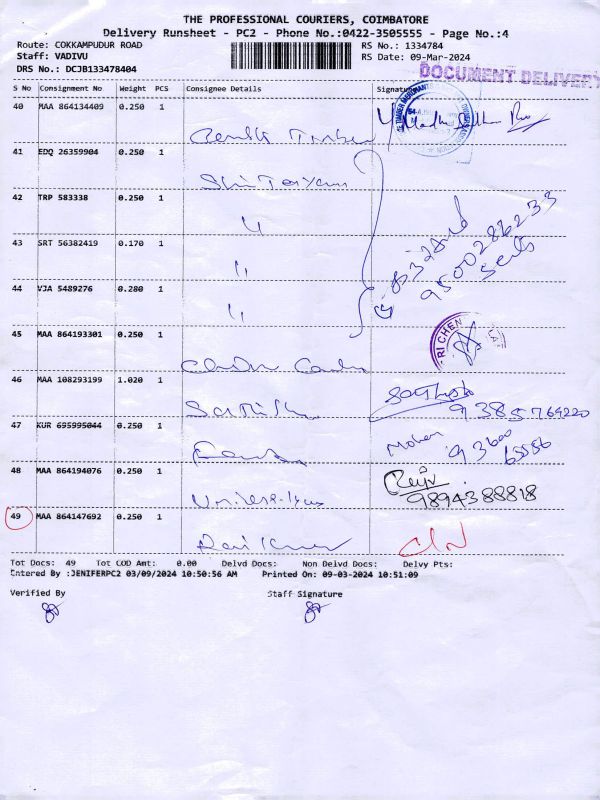 THE PROFESSIONAL COURIERS, COIMBATORE
Delivery Runsheet - PC2 - Phone No.:0422-3505555 - Page No.:4
Route: COKKAMPUDUR ROAD
Staff: VADIVU
DRS No.: DCJB133478404
RS No.: 1334784
RS Date: 09-Mar-2024
DOCUMENT DELIVERY
S No Consignment No Weight PCS Consignee Details Signature
40 MAA 864134409 0.250 1
Timber
41 EDQ 26359904 0.250 1
42 TRP 583338 0.250 1
43 SRT 56382419 0.170 1
44 VJA 5489276 0.280 1
9500286233
45 MAA 864193301 0.250 1
RI CHEN
46 MAA 108293199 1.020 1
Sathish
9385769220
47 KUR 695995044 0.250 1
Mohan
93600
65556
48 MAA 864194076 0.250 1
9894388818
49 MAA 864147692 0.250 1
Ravi Kumar
Tot Docs: 49 Tot COD Amt: 0.00 Delvd Docs: Non Delvd Docs: Delvy Pts:
Entered By :JENIFERPC2 03/09/2024 10:50:56 AM Printed On: 09-03-2024 10:51:09
Verified By Staff Signature